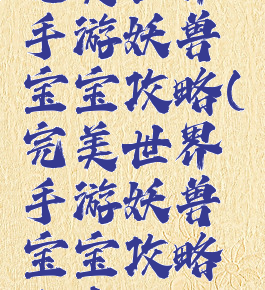 手游妖兽
宝宝攻略(
完美世界
手游妖兽
宝宝攻略